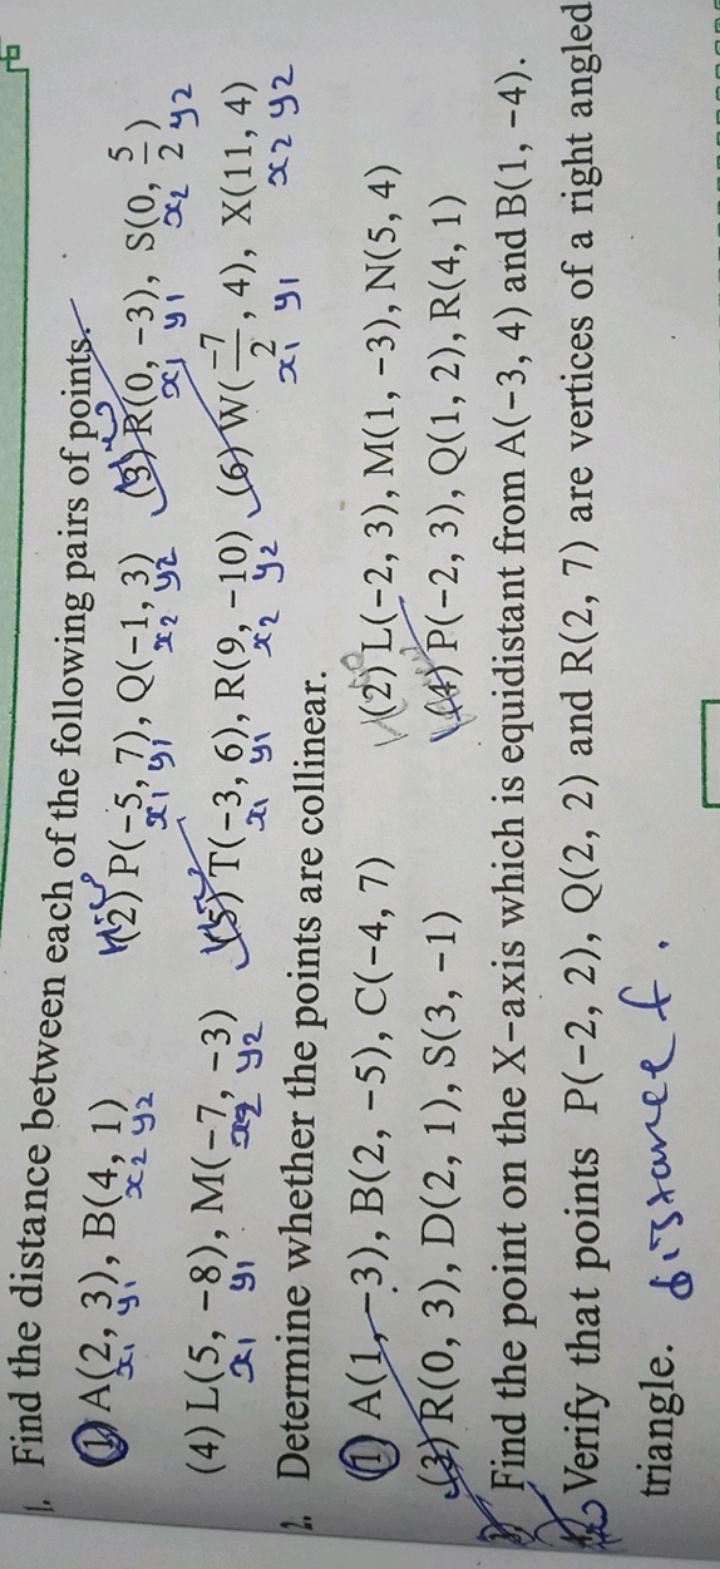 1. Find the distance between each of the following pairs of points.
(1) A(2, 3), B(4, 1) (2) P(−5, 7), Q(−1, 3) (3) R(0, −3), S(0, 5/2)
x1 y1 x2 y2 x1 y1 x2 y2 x1 y1 x2 y2
(4) L(5, −8), M(−7, −3) (5) T(−3, 6), R(9, −10) (6) W(−7/2, 4), X(11, 4)
x1 y1 x2 y2 x1 y1 x2 y2 x1 y1 x2 y2
2. Determine whether the points are collinear.
(1) A(1, −3), B(2, −5), C(−4, 7) (2) L(−2, 3), M(1, −3), N(5, 4)
(3) R(0, 3), D(2, 1), S(3, −1) (4) P(−2, 3), Q(1, 2), R(4, 1)
3. Find the point on the X-axis which is equidistant from A(−3, 4) and B(1, −4).
4. Verify that points P(−2, 2), Q(2, 2) and R(2, 7) are vertices of a right angled
triangle. distance f.